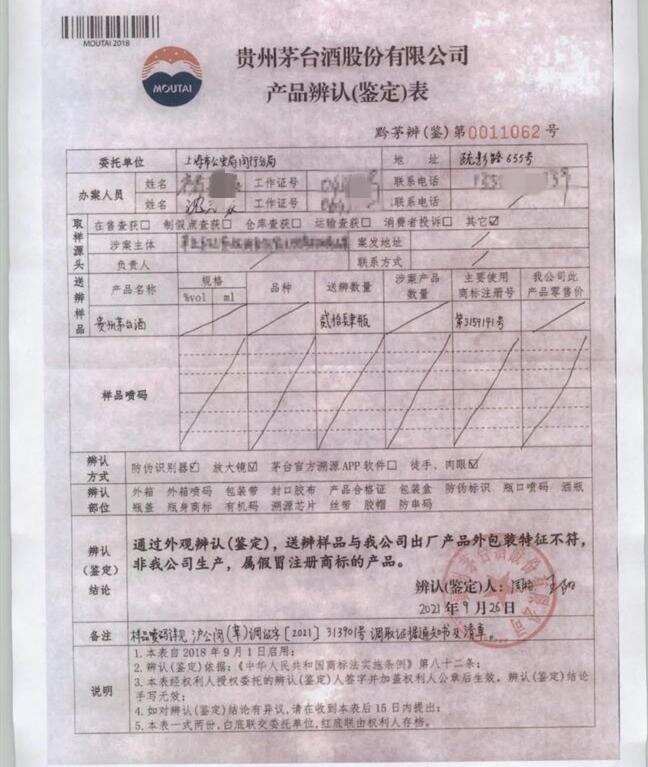 MOUTAI 2018
MOUTAI
贵州茅台酒股份有限公司
产品辨认(鉴定)表
黔茅辨(鉴)第0011062号
委托单位 上海市公安局闵行分局 地址 655号
办案人员 姓名 工作证号 联系电话
姓名 工作证号 联系电话
取样源头 在售查获□ 制假点查获□ 仓库查获□ 运输查获□ 消费者投诉□ 其它☑
涉案主体 案发地址
负责人 联系方式
送辨样品 产品名称 规格 %vol ml 品种 送辨数量 涉案产品数量 主要使用商标注册号 我公司此产品零售价
贵州茅台酒 贰拾肆瓶 第3159141号
样品喷码
辨认方式 防伪识别器☑ 放大镜☑ 茅台官方溯源APP软件□ 徒手、肉眼☑
辨认部位 外箱 外箱喷码 包装带 封口胶布 产品合格证 包装盒 防伪标识 瓶口喷码 酒瓶
瓶盖 瓶身商标 有机码 溯源芯片 丝带 胶帽 防串码
辨认(鉴定)结论 通过外观辨认(鉴定),送辨样品与我公司出厂产品外包装特征不符,
非我公司生产,属假冒注册商标的产品。
辨认(鉴定)人:
2021年9月26日
备注 样品喷码详见 沪公闵(革)调证字[2021]313901号 调取证据通知书及清单。
说明 1.本表自2018年9月1日启用;
2.辨认(鉴定)依据:《中华人民共和国商标法实施条例》第八十二条;
3.本表经权利人授权委托的辨认(鉴定)人签字并加盖权利人公章后生效,辨认(鉴定)结论
手写无效;
4.如对辨认(鉴定)结论有异议,请在收到本表后15日内提出;
5.本表一式两份,白底联交委托单位,红底联由权利人存档。